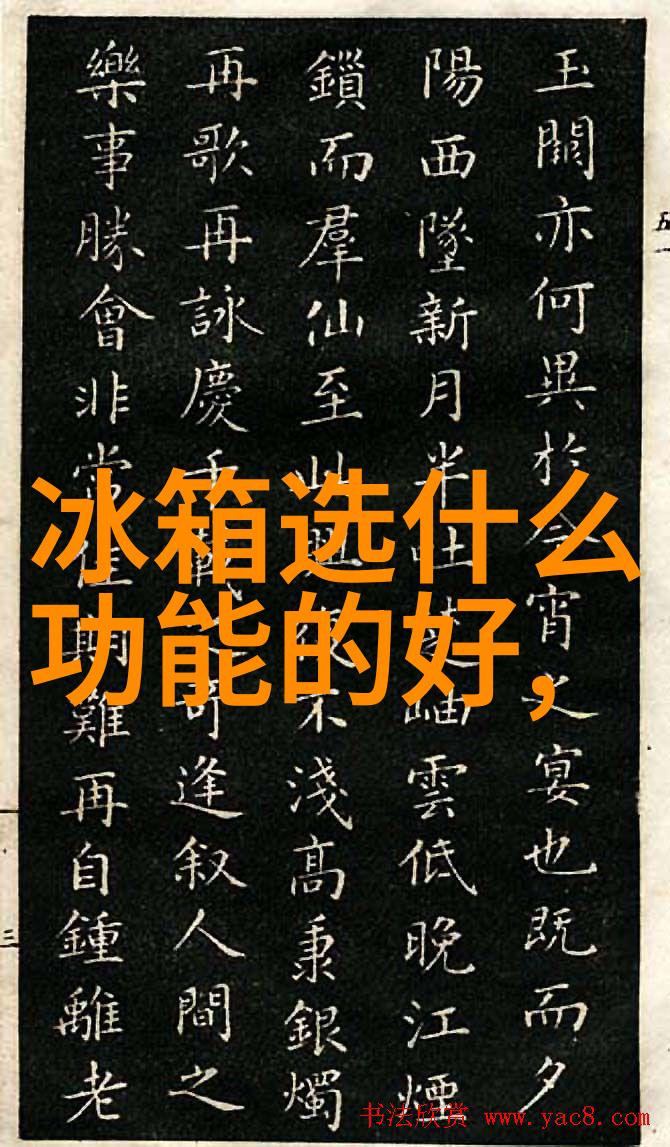 玉闕亦何異於今宵之宴也既而夕
陽西墜新月半吐
岫雲低晚江煙
鎖而羣仙至此興
不淺高秉銀燭
再歌再詠慶千載之奇逢叙人間之
樂事勝會非常佳期難再自鍾離老
冰箱选什么
功能的好,
五
三
书法欣赏 www.yac8.com